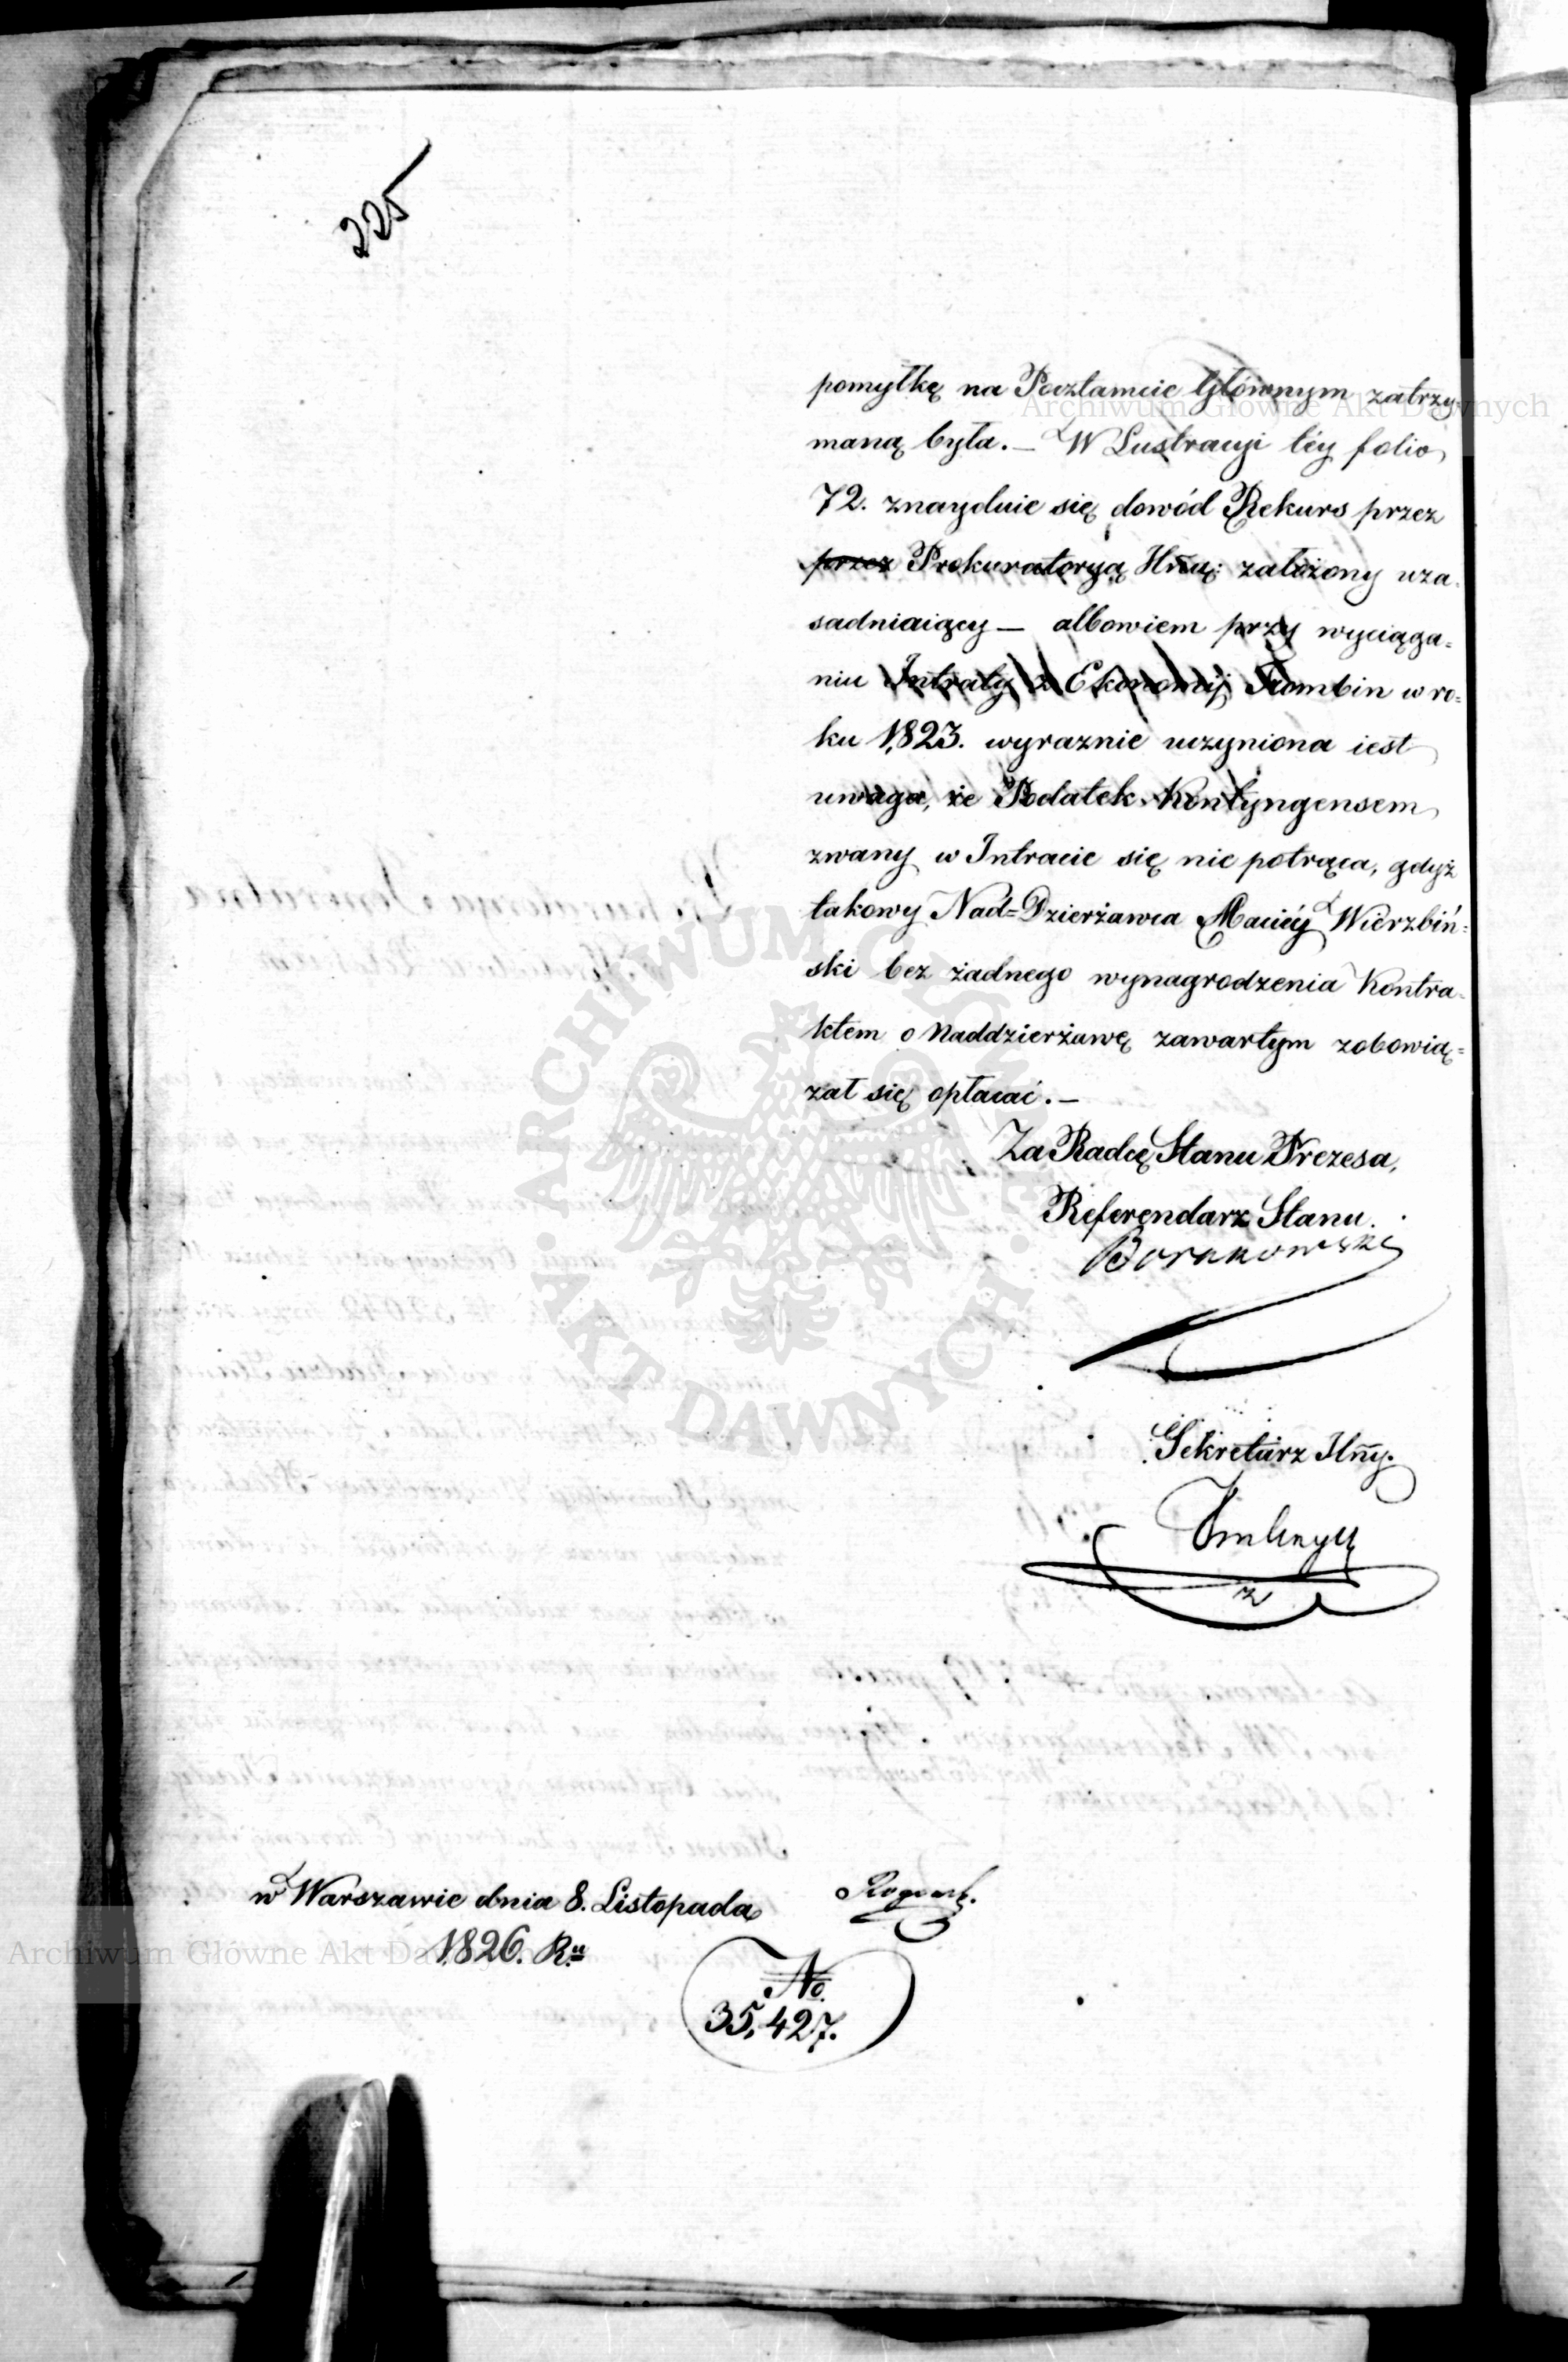 225
pomyłkę na Pocztamcie Głównym zatrzy-
maną była. — W Lustracyi téy folio
72. znayduie się dowód Rekurs przez
przez Prokuratoryą Jlną: założony uza-
sadniaiący — albowiem przy wyciąga=
niu Intraty z Ekonomij Trombin w ro=
ku 1823. wyraznie uczyniona iest
uwaga, że Podatek Kontyngensem
zwany w Intracie się nie potrąca, gdyż
takowy Nad=Dzierżawca Maciéy Wierzbiń=
ski bez żadnego wynagrodzenia Kontra-
ktem o Naddzierżawę zawartym zobowią=
zał się opłacać. —
Za Radcę Stanu Prezesa,
Referendarz Stanu.
Sekretarz Jlny.
w Warszawie dnia 8. Listopada
1826. Ru
No
35,427.
Archiwum Główne Akt Dawnych
Archiwum Główne Akt Dawnych
ARCHIWUM GŁÓWNE AKT DAWNYCH